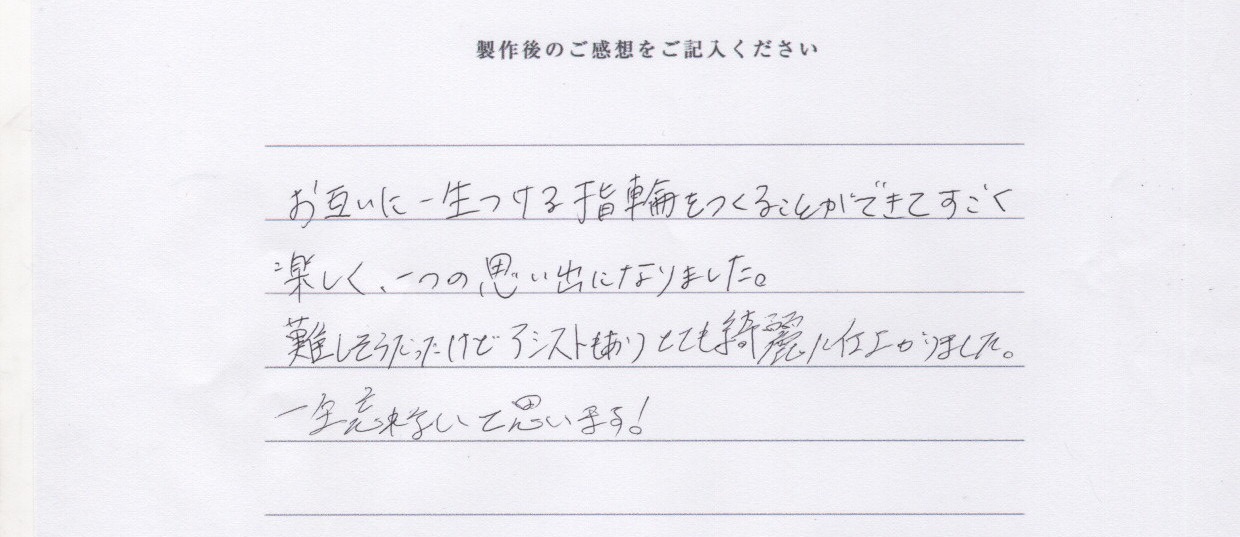 製作後のご感想をご記入ください
お互いに一生つける指輪をつくることができてすごく
楽しく、一つの思い出になりました。
難しそうだったけどアシストもありとても綺麗に仕上がりました。
一生忘れないと思います!